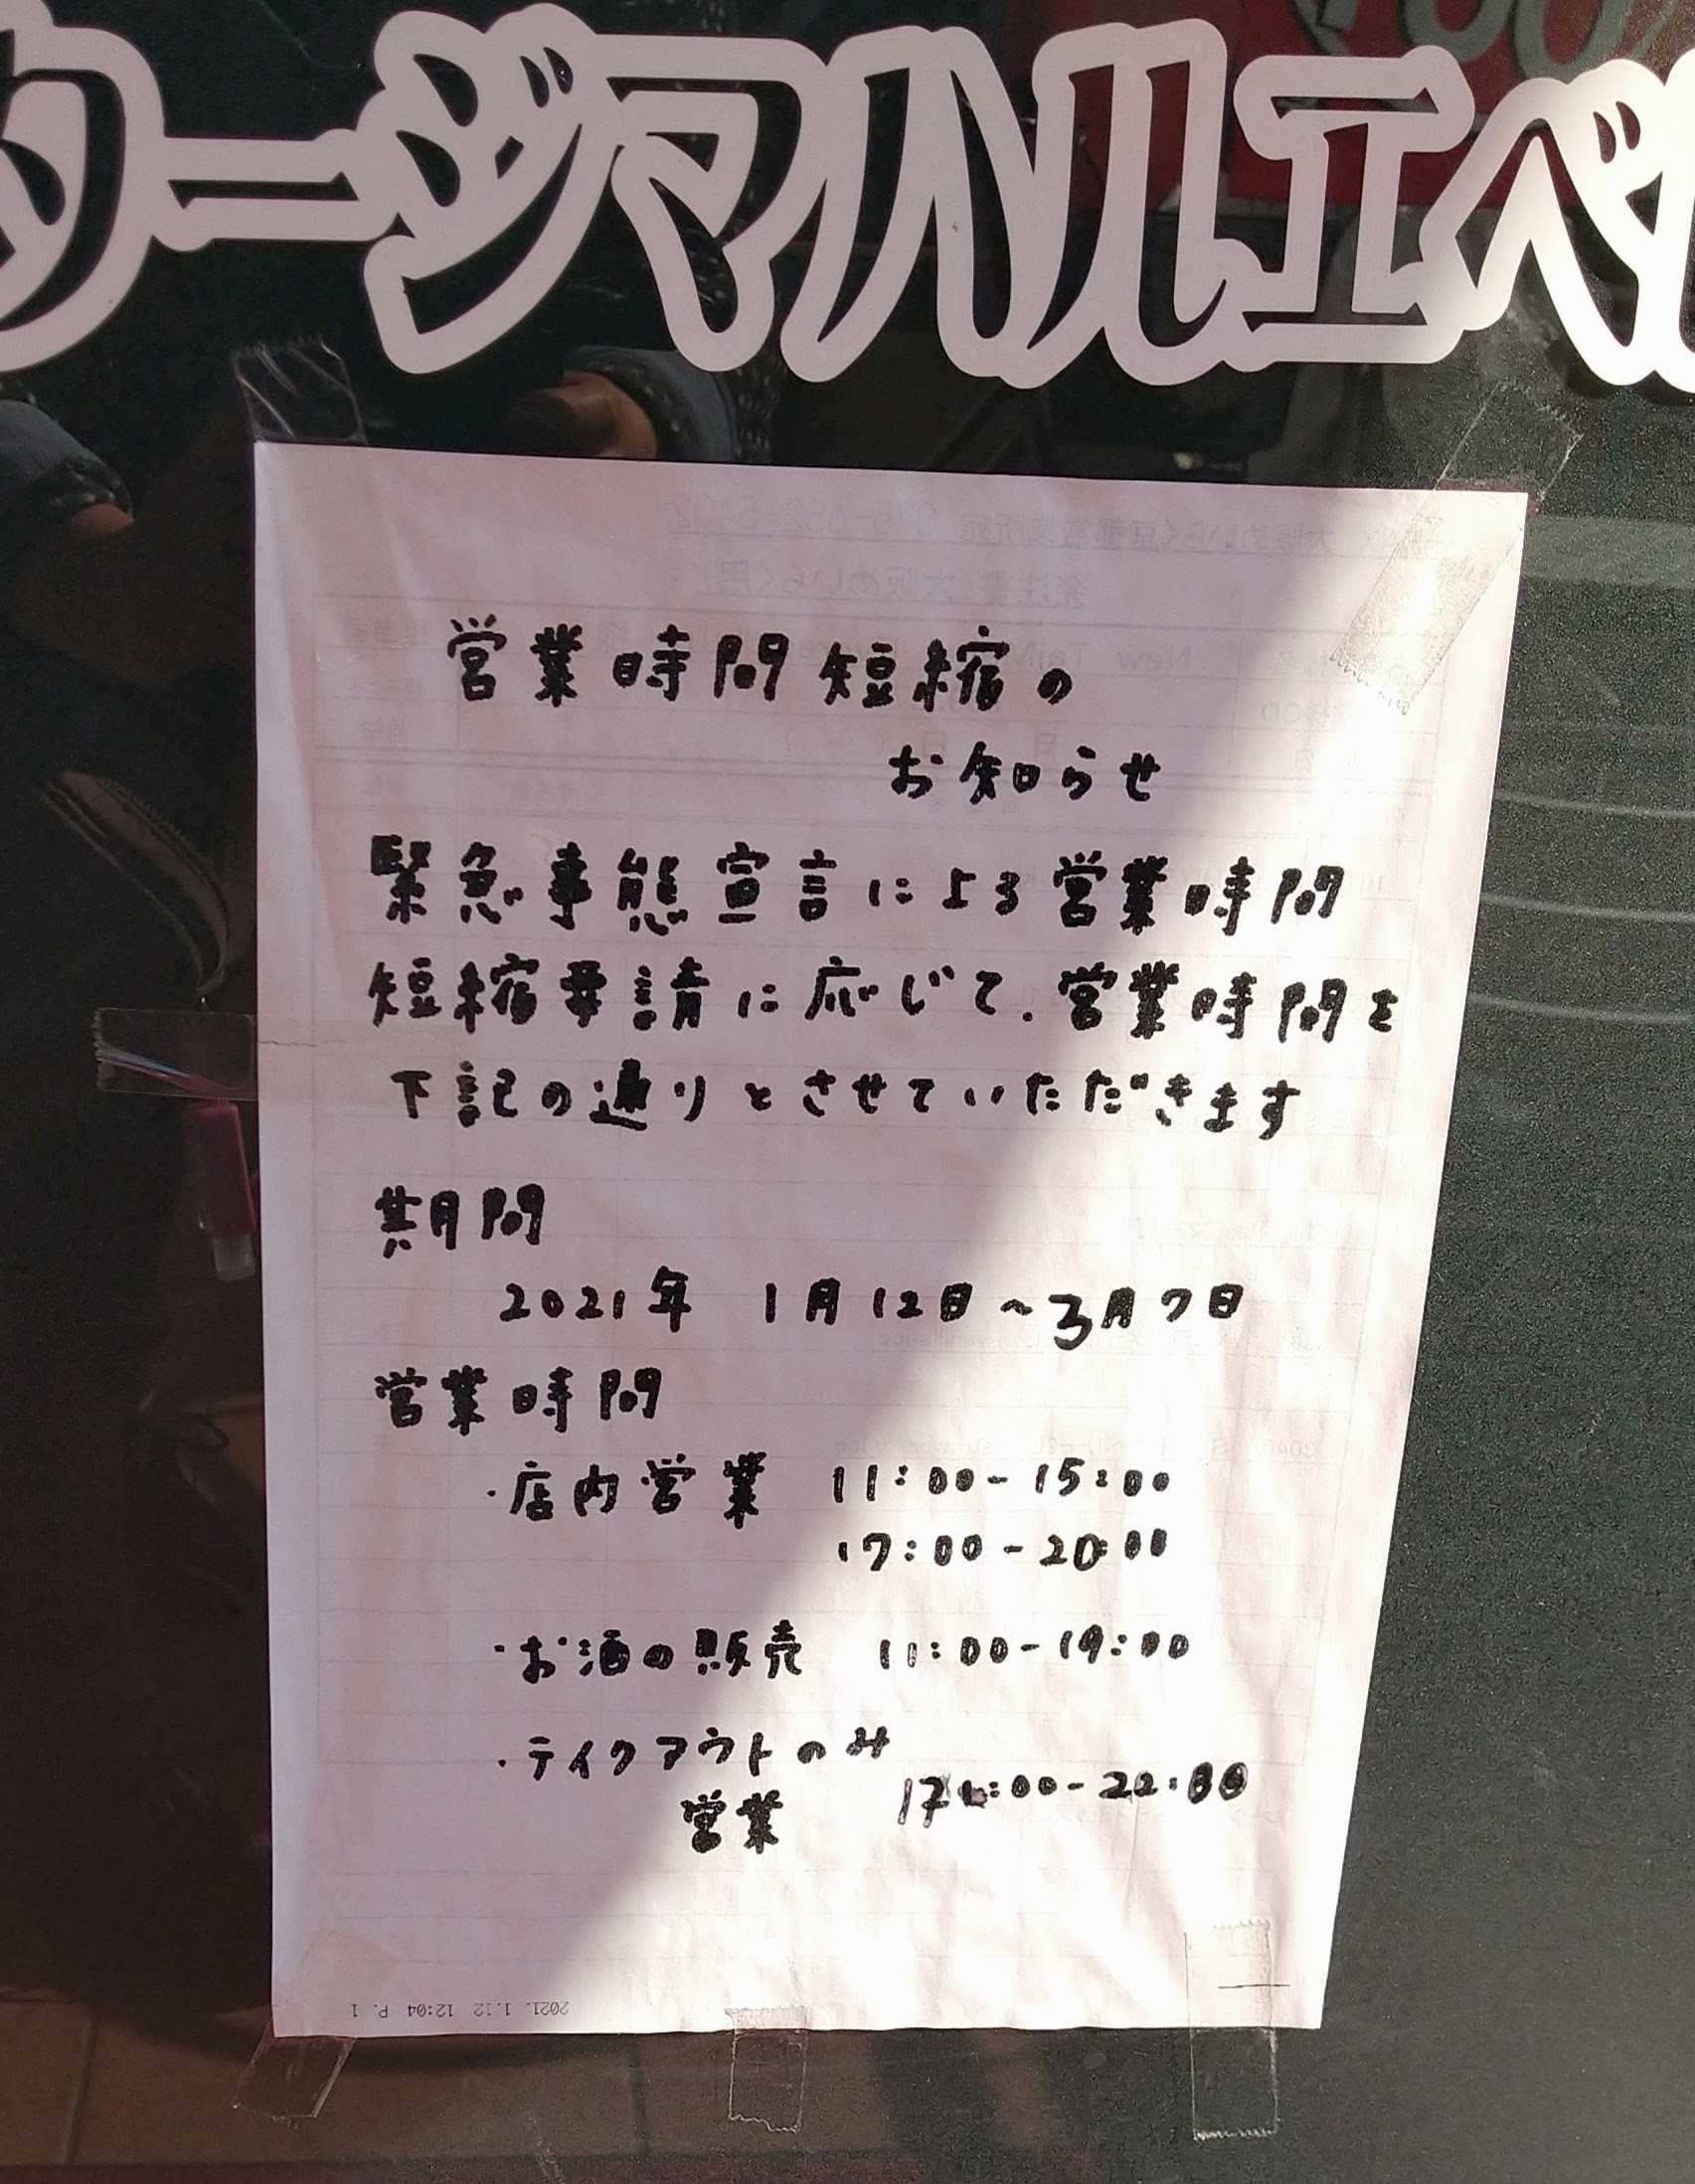 タージマハルエベ
営業時間短縮の
お知らせ
緊急事態宣言による営業時間
短縮要請に応じて.営業時間を
下記の通りとさせていただきます
期間
2021年 1月12日~3月7日
営業時間
・店内営業 11:00-15:00
17:00-20:00
・お酒の販売 11:00-19:00
・テイクアウトのみ
営業 17:00-22:00
2021. 1.12 12:04 P. 1